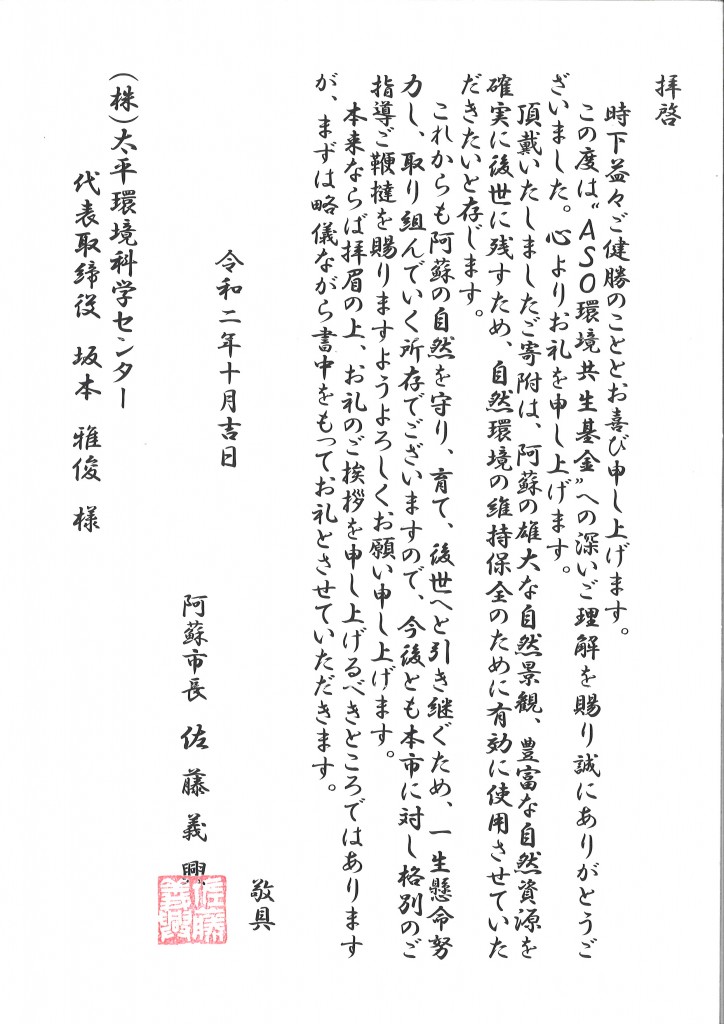 拝啓
時下益々ご健勝のこととお喜び申し上げます。
この度は“ASO環境共生基金”への深いご理解を賜り誠にありがとうご
ざいました。心よりお礼を申し上げます。
頂戴いたしましたご寄附は、阿蘇の雄大な自然景観、豊富な自然資源を
確実に後世に残すため、自然環境の維持保全のために有効に使用させていた
だきたいと存じます。
これからも阿蘇の自然を守り、育て、後世へと引き継ぐため、一生懸命努
力し、取り組んでいく所存でございますので、今後とも本市に対し格別のご
指導ご鞭撻を賜りますようよろしくお願い申し上げます。
本来ならば拝眉の上、お礼のご挨拶を申し上げるべきところではあります
が、まずは略儀ながら書中をもってお礼とさせていただきます。
敬具
令和二年十月吉日
阿蘇市長 佐藤義興
佐藤
義興
(株)太平環境科学センター
代表取締役 坂本 雅俊 様